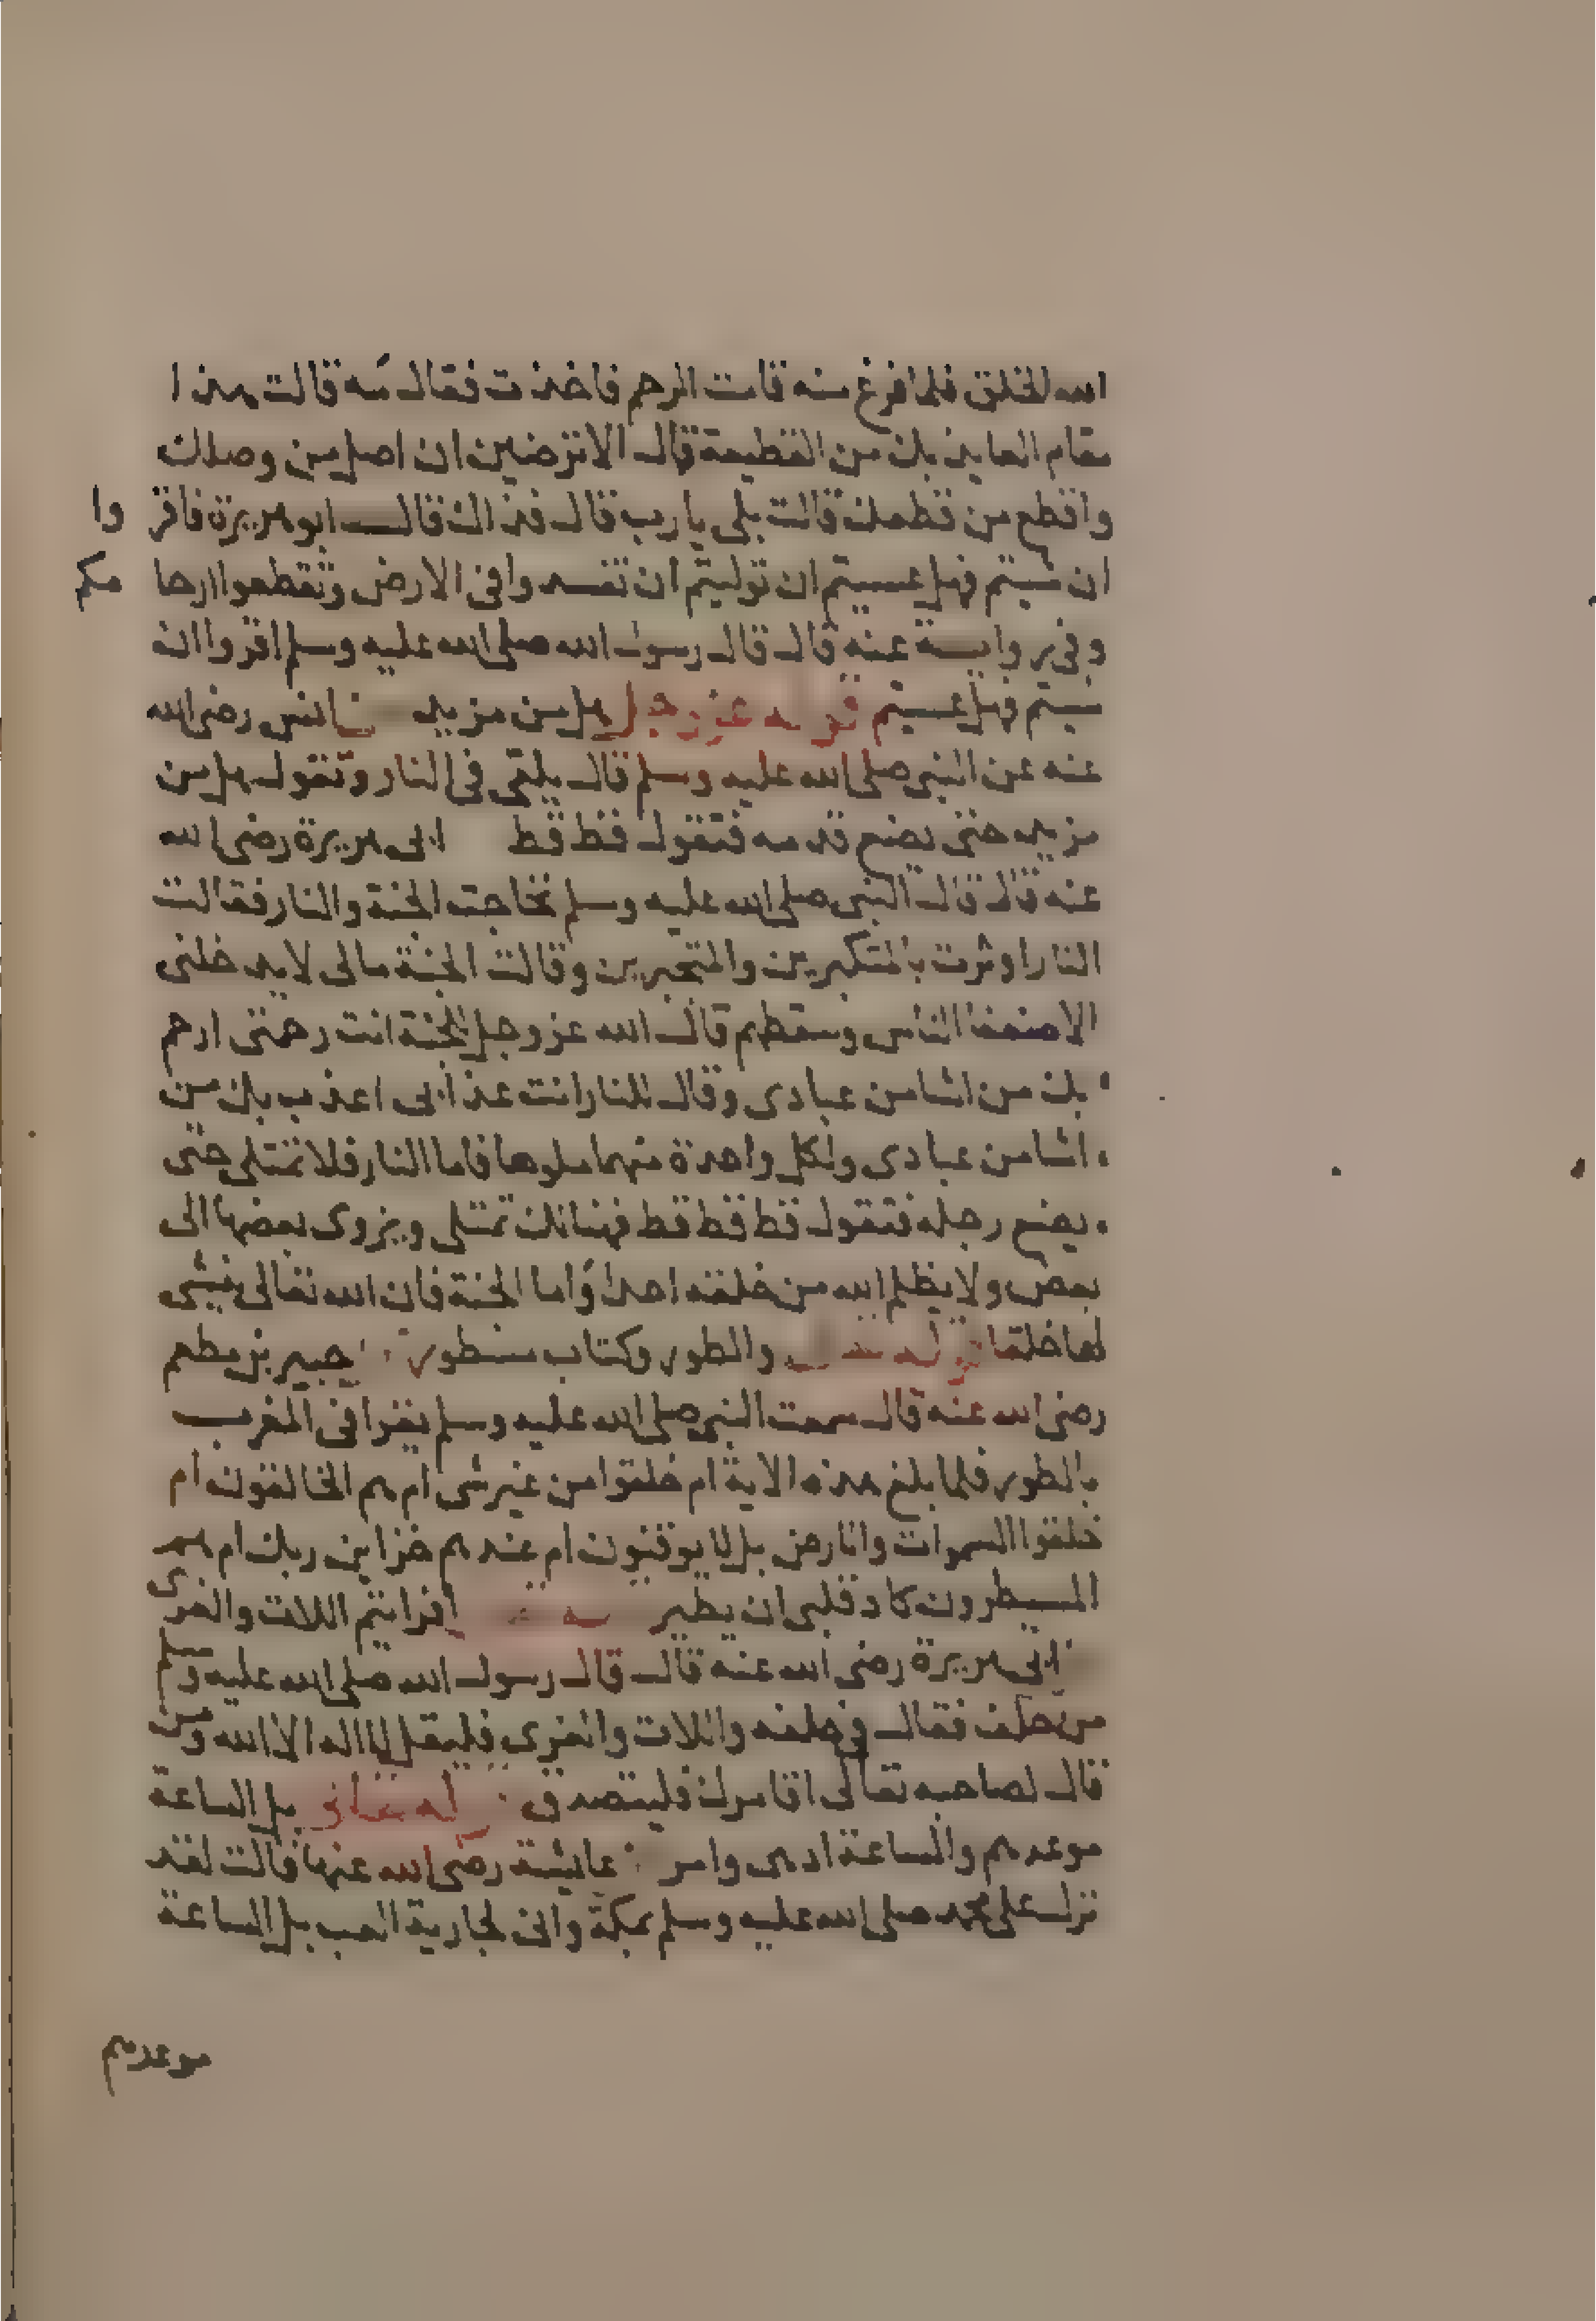 الله الخلق فلما فرغ منه قامت الرحم فاخذت فقال مه قالت هذا
مقام العايذ بك من القطيعة قال الا ترضين ان اصل من وصلك
واقطع من قطعك قالت بلى يا رب قال فذاك قال ابو هريرة فاقر وا
ان شيتم فهل عسيتم ان توليتم ان تفسدوا في الارض وتقطعوا ارحا مكم
وفي رواية عنه قال قال رسول الله صلى الله عليه وسلم اقروا ان
شيتم فهل عسيتم قوله عز وجل هل من مزيد انس رضى الله
عنه عن النبي صلى الله عليه وسلم قال يلقى في النار وتقول هل من
مزيد حتى يضع قدمه فتقول قط قط ابى هريرة رضى الله
عنه قال قال النبي صلى الله عليه وسلم تحاجت الجنة والنار فقالت
النار اوثرت بالمتكبرين والمتجبرين وقالت الجنة مالى لا يدخلنى
الا ضعفا الناس وسقطهم قال الله عز وجل للجنة انت رحمتى ارحم
بك من اشا من عبادى وقال للنار انت عذابى اعذب بك من
اشا من عبادى ولكل واحدة منهما ملوها فاما النار فلا تمتلى حتى
يضع رجله فتقول قط قط قط فهنالك تمتلى ويزوى بعضها الى
بعض ولا يظلم الله من خلقه احدا واما الجنة فان الله تعالى ينشى
لها خلقا قوله والطور وكتاب مسطور جبير بن مطعم
رضى الله عنه قال سمعت النبي صلى الله عليه وسلم يقرا في المغرب
بالطور فلما بلغ هذه الاية ام خلقوا من غير شى ام هم الخالقون ام
خلقوا السموات والارض بل لا يوقنون ام عندهم خزاين ربك ام هم
المسيطرون كاد قلبى ان يطير افرايتم اللات والعزى
ابى هريرة رضى الله عنه قال قال رسول الله صلى الله عليه وسلم
من حلف فقال في حلفه واللات والعزى فليقل لا اله الا الله ومن
قال لصاحبه تعالى اقامرك فليتصدق له تعالى بل الساعة
موعدهم والساعة ادهى وامر عايشة رضى الله عنها قالت لقد
نزل على محمد صلى الله عليه وسلم بمكة وانى لجارية العب بل الساعة
موعدهم